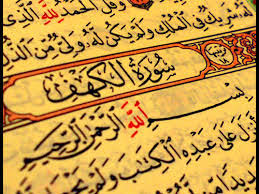 وَقُلِ الْحَمْدُ لِلَّهِ الَّذِي
لَهُ شَرِيكٌ فِي الْمُلْكِ وَلَمْ يَكُنْ لَهُ وَلِيٌّ مِنَ الذُّلِّ
سُورَةُ الْكَهْفِ
بِسْمِ اللَّهِ الرَّحْمَٰنِ الرَّحِيمِ
أَنْزَلَ عَلَىٰ عَبْدِهِ الْكِتَابَ وَلَمْ